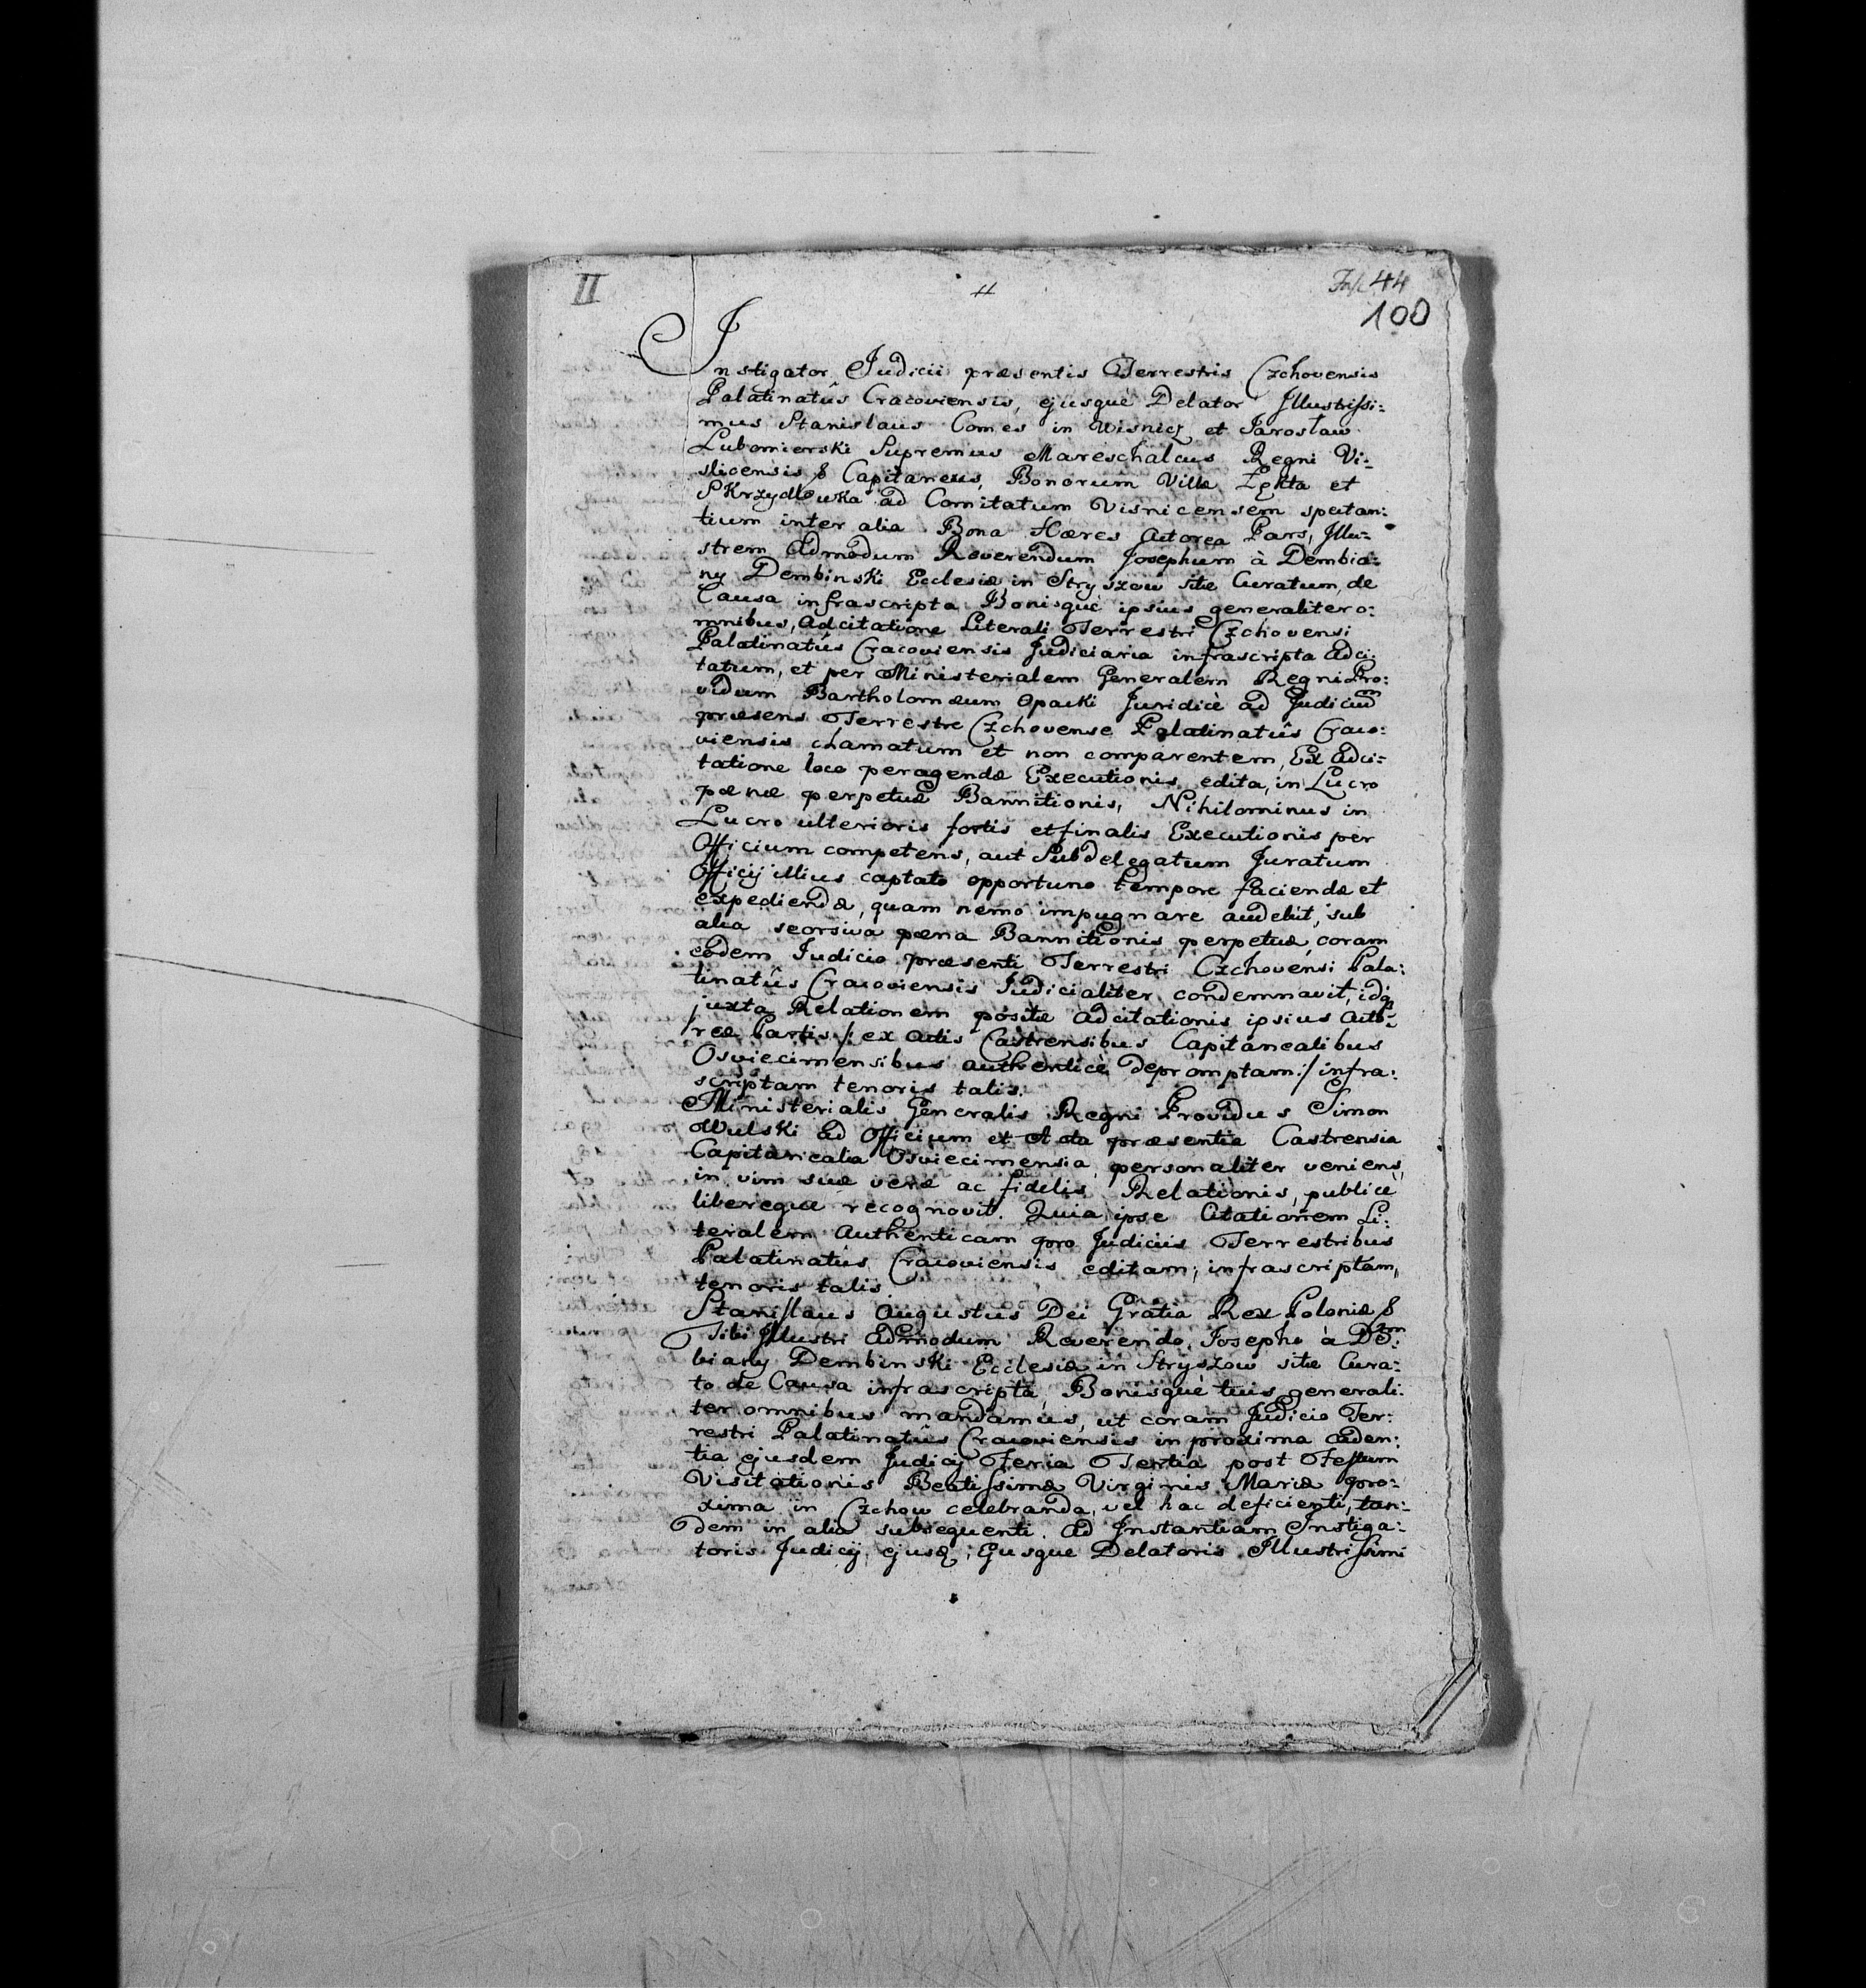 II
Fasc 44
100
Instigator Judicii præsentis Terrestris Czchoviensis
Palatinatûs Cracoviensis, ejusquè Delator Illustrissi:
mus Stanislaus Comes in Wisnicz et Jarosław
Lubomierski Supremus Mareschalcus Regni Vi:
slicensis & Capitaneus, Bonorum Villæ Łękta et
Skrzydlowka ad Comitatum Visnicensem spectan:
tium inter alia Bona Hæres Actorea Pars, Illu:
strem Admodum Reverendum Josephum à Dembia:
ny Dembinski Ecclesiæ in Stryszow sitæ Curatum, de
Causa infrascripta Bonisquè ipsius generaliter o:
mnibus, Adcitatione Literali Terrestri Czchovensi
Palatinatûs Cracoviensis Judiciaria infrascripta adci:
tatum, et per Ministerialem Generalem Regni Pro:
vidum Bartholomæum Opacki Juridicè ad Judiciu͞m
præsens Terrestre Czchovense Palatinatûs Craco:
viensis clamatum et non comparentem, Ex Adci:
tatione loco peragendæ Executionis edita, in Lucro
pænæ perpetuæ Bannitionis, Nihilominus in
Lucro ulterioris fortis et finalis Executionis per
Officium competens, aut Subdelegatum Juratum
Officij illius captato opportuno tempore faciendæ et
expediendæ, quam nemo impugnare audebit, sub
alia seorsiva pæna Bannitionis perpetuæ, coram
eodem Judicio præsenti Terrestri Czchovensi Pala:
tinatûs Cracoviensis Judicialiter condemnavit, idq
juxta Relationem positæ adcitationis ipsius Acto:
reæ Partis /: ex Actis Castrensibus Capitanealibus
Osviecimensibus authenticè depromptam :/ infra:
scriptam tenoris talis.
Ministerialis Generalis Regni Providus Simon
Wulski ad Officium et Acta præsentia Castrensia
Capitanealia Osviecimensia personaliter veniens,
in vim suæ veræ ac fidelis Relationis, publicè
libereque recognovit. Quia ipse Citationem Li:
teralem Authenticam pro Judiciis Terrestribus
Palatinatûs Cracoviensis editam, infrascriptam,
tenoris talis.
Stanislaus Augustus Dei Gratia Rex Poloniæ &
Tibi Illustri Admodum Reverendo Josepho à De͞m:
biany Dembinski Ecclesiæ in Stryszow sitæ Cura:
to de Causa infrascripta, Bonisquè tuis generali:
ter omnibus mandamus, ut coram Judicio Ter:
restri Palatinatûs Cracoviensis in proxima caden:
tia ejusdem Judicij Feria Tertia post Festum
Visitationis Beatissimæ Virginis Mariæ pro:
xima in Czchow celebranda, vel hac deficienti, tan:
dem in alia subsequenti. Ad Instantiam Instiga:
toris Judicij, ejusq; Ejusque Delatoris Illustrissimi